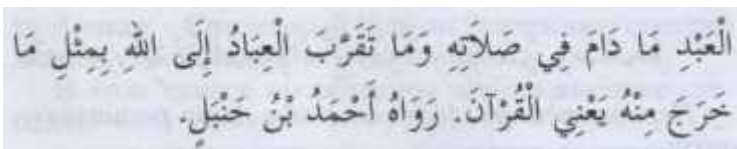 الْعَبْدِ مَا دَامَ فِي صَلاَتِهِ وَمَا تَقَرَّبَ الْعِبَادُ إِلَى اللهِ بِمِثْلِ مَا
خَرَجَ مِنْهُ يَعْنِي الْقُرْآنَ. رَوَاهُ أَحْمَدُ بْنُ حَنْبَلٍ.